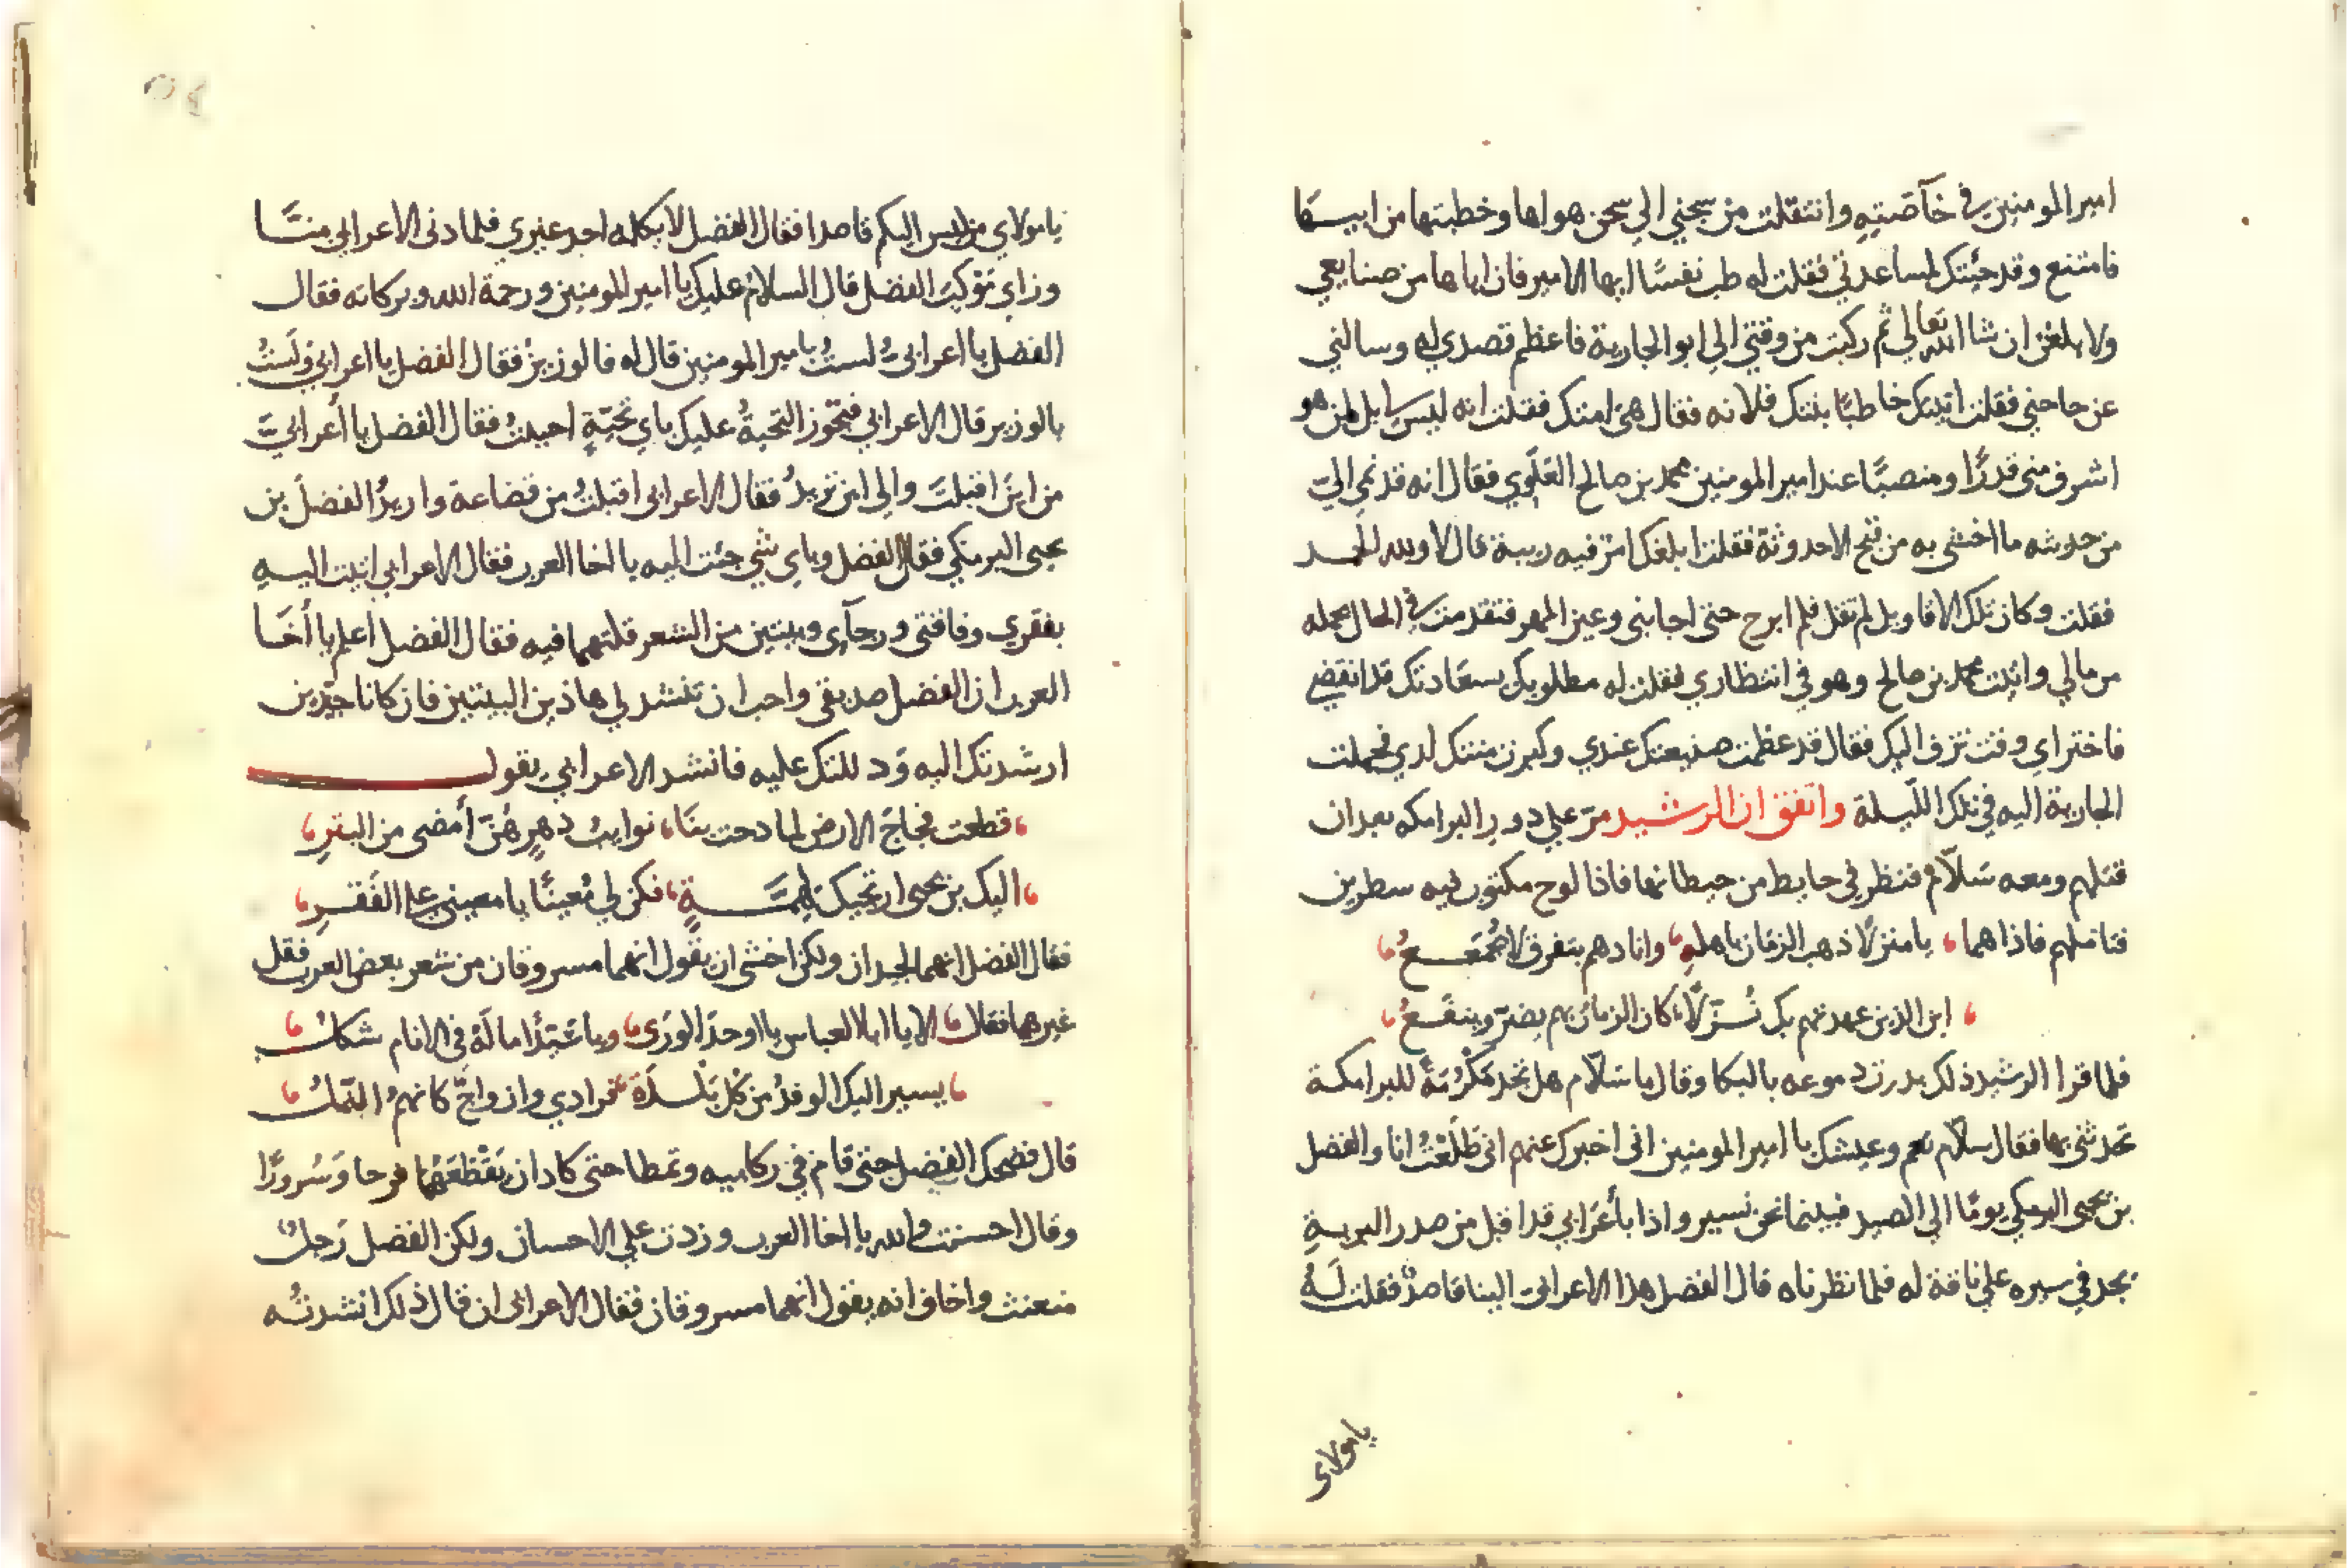 امير المومنين في خآصّتهِ وانتقلت من سجني الي سجن هواها وخطبتها من ابيهَا
فامتنع وقد جئتك لمساعدتي فقلت له طب نفسًا ايها الامير فان اباها من صنايعي
ولا بلغن ان شا الله تعالي ثم ركبت من وقتي الي ابو الجارية فاعظم قصدي له وسالني
عن حاجتي فقلت اتيتك خاطبًا بنتك فلانه فقال هي امتك فقلت انه ليس لي بل لمن هو
اشرف مني قدرًا ومنصبًا عند امير المومنين محمد بن صالح العَلَوي فقال انه قد نمي اليّ
من حديثه ما اخشي به من قبح الاحدوثة فقلت ابلغك امر فيه ريبة قال لا ولله الحمد
فقلت وكان تلك الاقاويل لم تقل فلم ابرح حتى اجابني وعين المهر فتقدمت في الحال بحمله
من مالي واتيت محمد بن صالح وهو في انتظاري فقلت له مطلوبك بسعَادتك قد انقضي
فاختر اي وقت تزف اليك فقال قد عظمت صنيعتك عندي وكبرت منتك لدي فحملت
الجارية اليه في تلك اللّيلة واتفق ان الرشيد مرّ علي دور البرامكه بعد ان
قتلهم ومعه سَلّام فنظر في حايط من حيطانها فاذا لوح مكتوب فيه سطرين
فتاملهم فاذا هما يا منزلًا ذهب الزمَان باهلهِ وابادهم بتفرق لا يُجمَعُ
اين الذين عهدتهم بك نُزّلًا كان الزمان بهم يضرّ وينفَعُ
فلما قرا الرشيد ذلك بدرت دموعه بالبكا وقال يا سَلّام هل تجد مَكْرُمَةً للبرامكة
تحدثني بها فقال سلّام نعم وعيشك يا امير المومنين اني اخبرك عنهم اني طَلَعْتُ انا والفضل
بن يحيى البرمكي يومًا الي الصيد فبينما نحن نسير واذا بأعرَابي قد اقبل من صدر البريةِ
يجد في سيره علي ناقة له فلما نظرناه قال الفضل هذا الاعرابيّ الينا قاصدٌ فقلت لَهُ
يا مولاي
يا مولاي من ليس اليكم قاصدا فقال الفضل لا يكلمه احد غيري فلما دنى الاعرابي منَّا
وراي مَوْكبَ الفضل قال السلامُ عليك يا امير المومنين ورحمة الله وبركاته فقال
الفضل يا اعرابيُّ لستُ بامير المومنين قال له فالوزيرُ فقال الفضل يا اعرابي ولَستُ
بالوزير قال الاعرابي فتجوز التحيةُ عليك باي تحيّةٍ احييتُ فقال الفضل يا أعرابيَّ
من اينَ اقبلتَ والي اين تريدُ فقال الاعرابي اقبلتُ من قضاعة واريدُ الفضلَ بن
يحيى البرمكي فقال الفضل وباي شي جئت اليه يا اخا العرب فقال الاعرابي اتيت اليهِ
بفقري وفاقتي ورجآي وبيتين من الشعر قلتهما فيه فقال الفضل اعلم يا أخَا
العرب ان الفضل صديقي واحب ان تنشد لي هاذين البيتين فان كانا جيّدين
ارشدتك اليه وَدللتك عليه فانشد الاعرابي يقول
قطعت فجاجَ الارض لما دحت بنَا نوايبُ دهرٍ هُنّ أمضى من البترِ
اليك بن يحيى ارتجيك لِهمَّةٍ فكن لي مُعينًا يا معيني علي الفَقرِ
فقال الفضل انهما لجيدان ولكن اخشي ان يقول انهما مسروقان من شعر بعض العرب فقل
غيرهما فقال الا يا ابا العباس يا اوحدَ الورَى ويا سَيّدًا ما لَهُ في الانام شكلُ
يسير اليك الوفدُ من كل بَلْدَة فرادي وازواجٌ كانهمُ النّملُ
قال فضحك الفضل حتى قام في ركابيه وتمطا حتى كاد ان يَقْطَعَهُما فرحا وَسُرورًا
وقال احسنت والله يا اخا العرب وزدت علي الاحسان ولكن الفضل رَجلٌ
متعنت واخاف انه يقول انهما مسروقان فقال الاعرابي ان قال ذلك انشدتُه